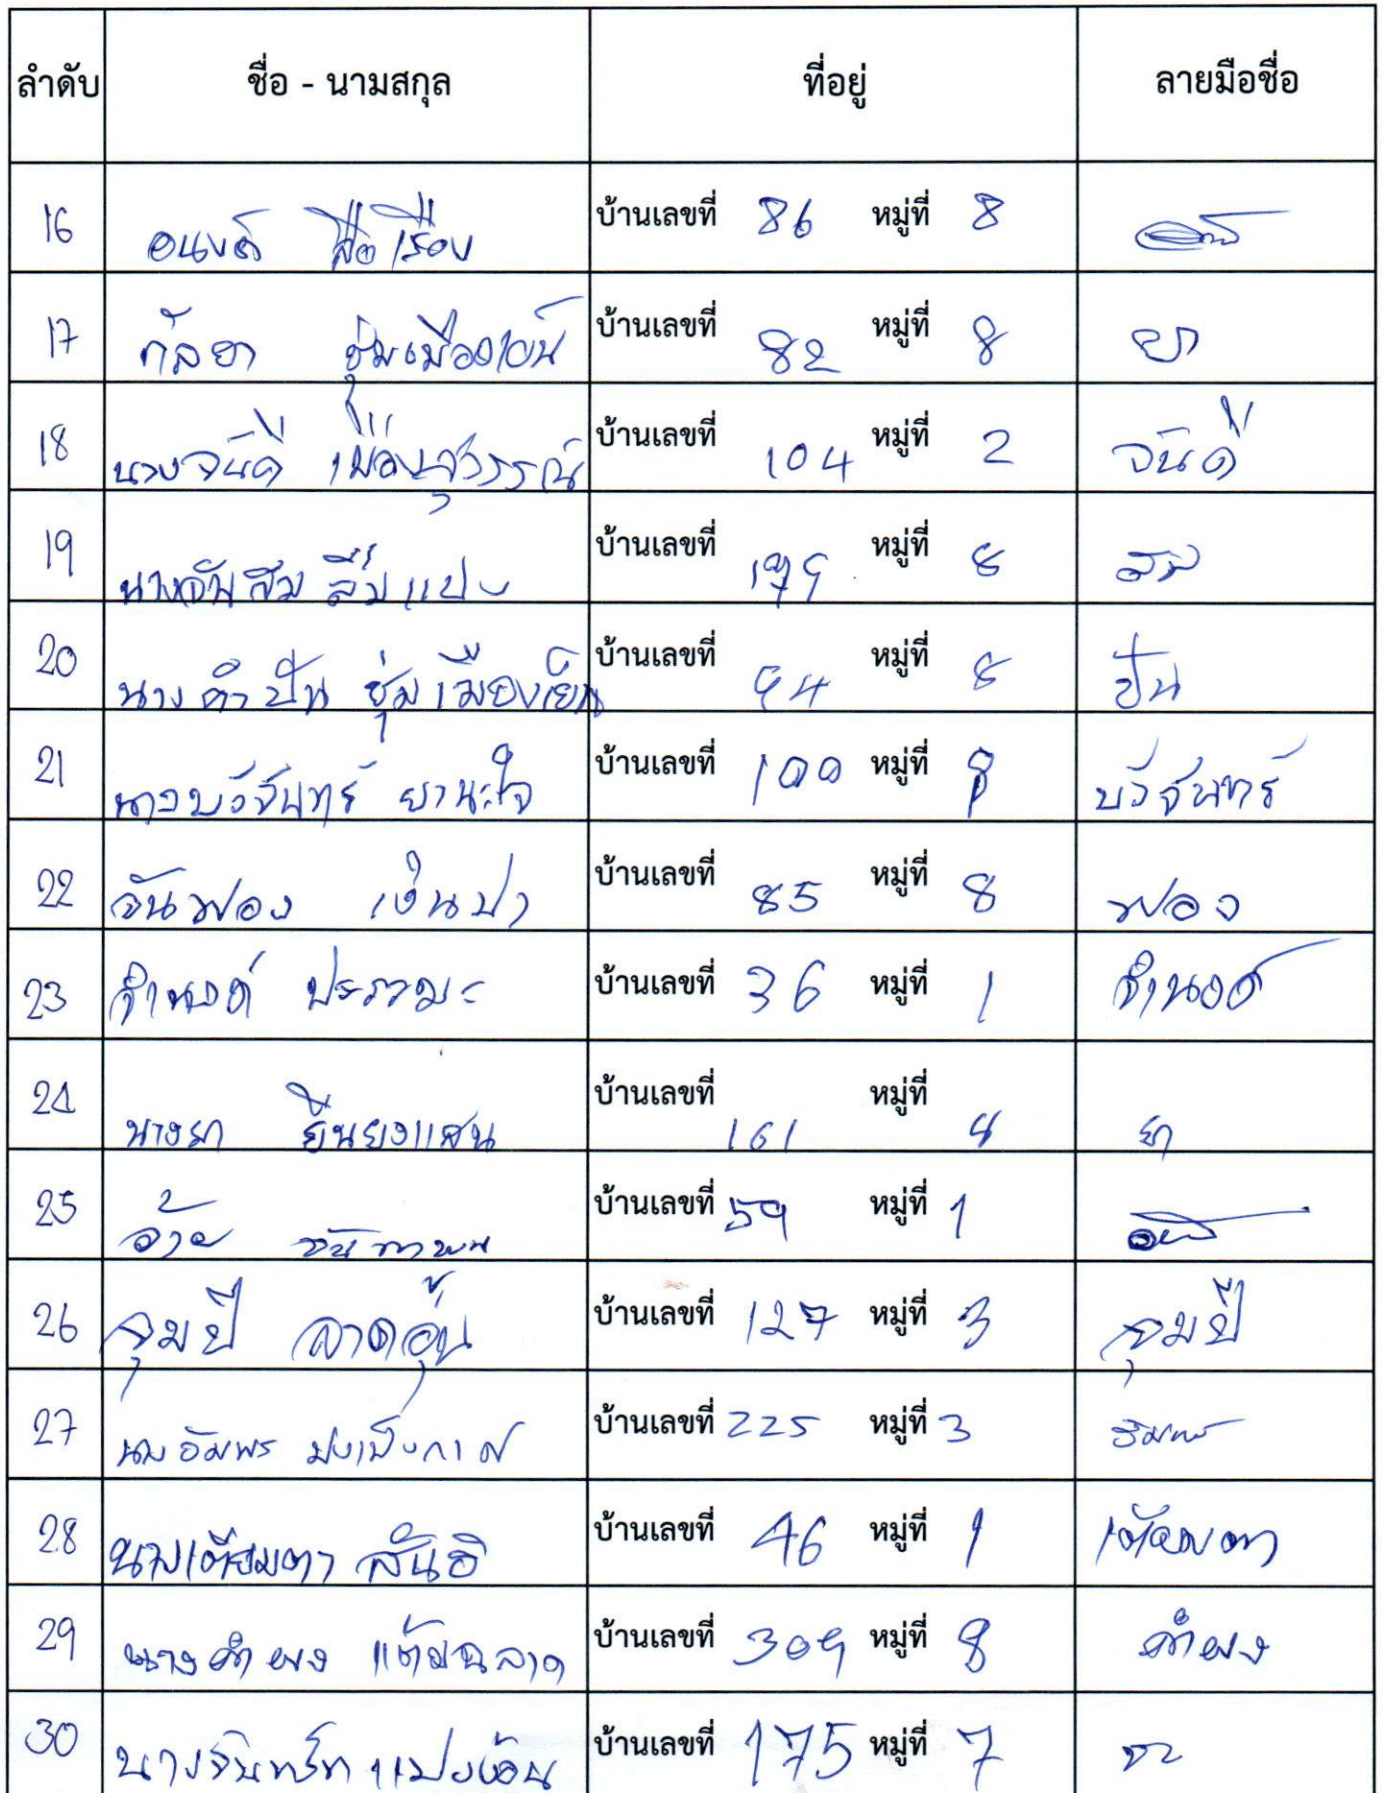 ลำดับ ชื่อ - นามสกุล ที่อยู่ ลายมือชื่อ
16 อนงค์ สือเรือง บ้านเลขที่ 86 หมู่ที่ 8
17 กัลยา ชุ่มเมืองเย็น บ้านเลขที่ 82 หมู่ที่ 8 ยา
18 นางจันดี เมืองสุวรรณ์ บ้านเลขที่ 104 หมู่ที่ 2 จันดี
19 นางจันสม บ้านเลขที่ 179 หมู่ที่ 8
20 นางคำปัน ชุ่มเมืองเย็น บ้านเลขที่ 94 หมู่ที่ 8 ปัน
21 นางบัวจันทร์ ยานะใจ บ้านเลขที่ 100 หมู่ที่ 8 บัวจันทร์
22 จันฟอง เงินปา บ้านเลขที่ 85 หมู่ที่ 8 ฟอง
23 จำนงค์ บ้านเลขที่ 36 หมู่ที่ 1 จำนงค์
24 นางยา ยืนยงแสน บ้านเลขที่ 161 หมู่ที่ 8 ยา
25 อ้าย บ้านเลขที่ 59 หมู่ที่ 1
26 จุมปี ลาดอุ่น บ้านเลขที่ 127 หมู่ที่ 3 จุมปี
27 นางอัมพร บ้านเลขที่ 225 หมู่ที่ 3 อัมพร
28 นางเตียมตา สันธิ บ้านเลขที่ 46 หมู่ที่ 1 เตียมตา
29 นางคำผง แต้มฉลาด บ้านเลขที่ 309 หมู่ที่ 8 คำผง
30 บ้านเลขที่ 175 หมู่ที่ 7